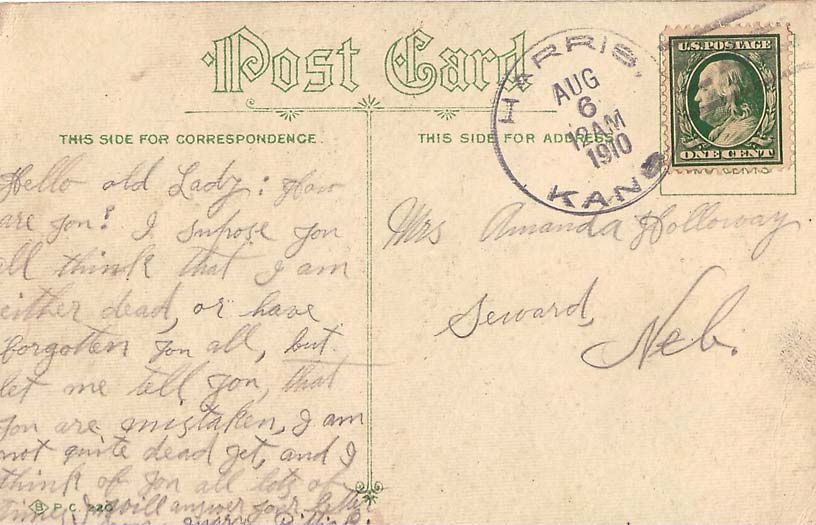 Post Card
THIS SIDE FOR CORRESPONDENCE.
THIS SIDE FOR ADDRESS
HARRIS,
AUG
6
12AM
1910
KANS
U.S. POSTAGE
ONE CENT
Hello old Lady: How
are you? I supose you
all think that I am
either dead, or have
forgotten you all, but
let me tell you, that
you are mistaken, I am
not quite dead yet, and I
think of you all lots of
time, I will answer your letter
P.C. 220
Mrs Amanda Holloway
Seward,
Neb.